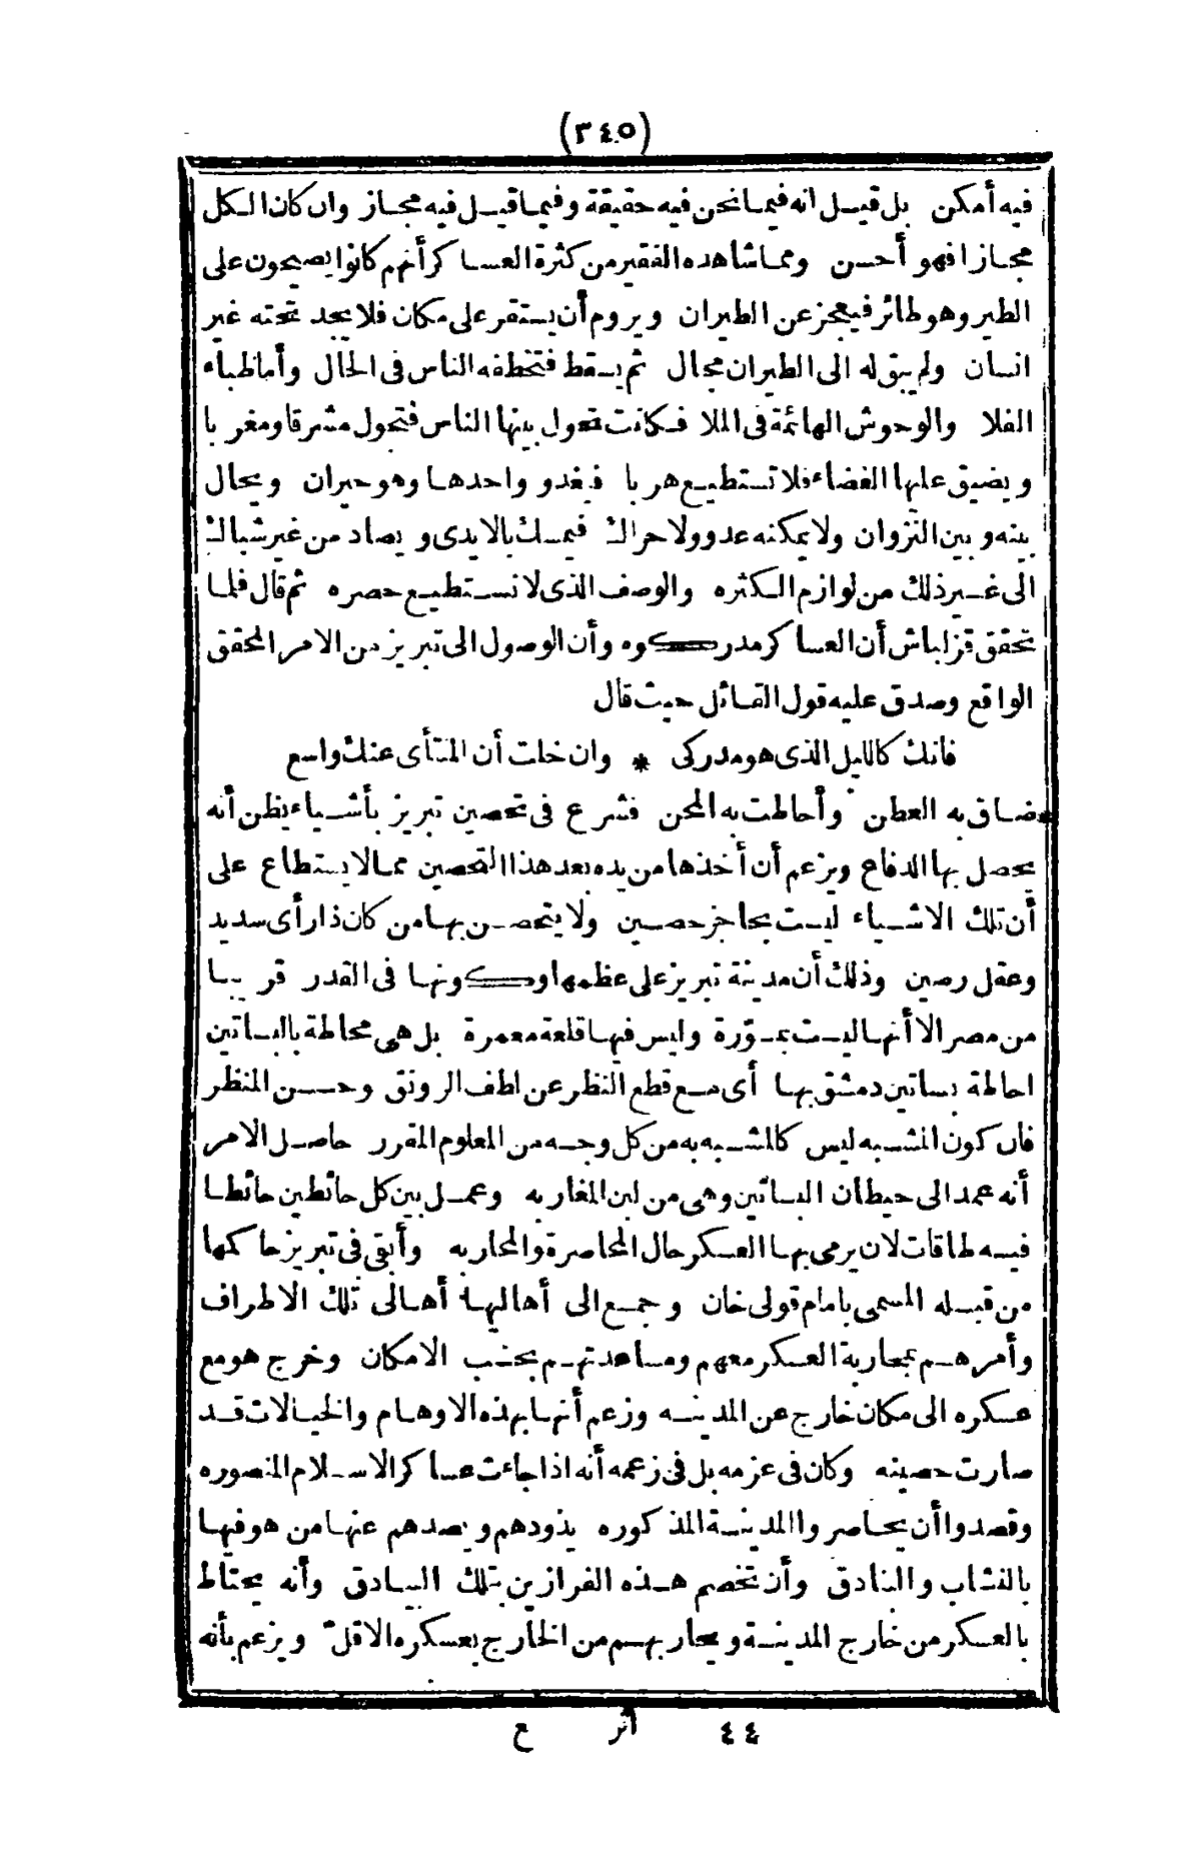 (٣٤٥)
فيه أمكن بل قيل انه فيما نحن فيه حقيقة وفيما قيل فيه مجاز وان كان الكل
مجازا فهو أحسن ومما شاهده الفقير من كثرة العساكر أنهم كانوا يصيحون على
الطير وهو طائر فيعجز عن الطيران ويروم أن يستقر على مكان فلا يجد تحته غير
انسان ولم يبق له الى الطيران مجال ثم يسقط فتخطفه الناس فى الحال وأما ظباء
الفلا والوحوش الهائمة فى الملا فكانت تحول بينها الناس فتجول مشرقا ومغربا
ويضيق عليها الفضاء فلا تستطيع هربا فيغدو واحدها وهو حيران ويحال
بينه وبين النزوان ولا يمكنه عدو ولا حراك فيمسك بالايدى ويصاد من غير شباك
الى غير ذلك من لوازم الكثره والوصف الذى لا نستطيع حصره ثم قال فلما
تحقق قزلباش أن العساكر مدركوه وأن الوصول الى تبريز من الامر المحقق
الواقع وصدق عليه قول القائل حيث قال
فانك كالليل الذى هو مدركى * وان خلت أن المنتأى عنك واسع
ضاق به العطن وأحاطت به المحن فشرع فى تحصين تبريز بأشياء يظن أنه
يحصل بها الدفاع ويزعم أن أخذها من يده بعد هذا التحصين مما لا يستطاع على
أن تلك الاشياء ليست بحاجز حصين ولا يتحصن بها من كان ذا رأى سديد
وعقل رصين وذلك أن مدينة تبريز على عظمها وكونها فى القدر قريبا
من مصر الا أنها ليست بمسوّرة وليس فيها قلعة معمرة بل هى محاطة بالبساتين
احاطة بساتين دمشق بها أى مع قطع النظر عن لطف الرونق وحسن المنظر
فان كون المشبه ليس كالمشبه به من كل وجه من المعلوم المقرر حاصل الامر
أنه عمد الى حيطان البساتين وهى من لبن المغاربه وعمل بين كل حائطين حائطا
فيه طاقات لان يرمى بها العسكر حال المحاصرة والمحاربه وأبقى فى تبريز حاكمها
من قبله المسمى بامام قولى خان وجمع الى أهاليها أهالى تلك الاطراف
وأمرهم بمحاربة العسكر معهم ومساعدتهم بحسب الامكان وخرج هو مع
عسكره الى مكان خارج عن المدينه وزعم أنها بهذه الاوهام والخيالات قد
صارت حصينه وكان فى عزمه بل فى زعمه أنه اذا جاءت عساكر الاسلام المنصوره
وقصدوا أن يحاصروا المدينة المذكوره يذودهم ويصدهم عنها من هو فيها
بالنشاب والبنادق وأن تخصم هذه الفرازين بتلك البيادق وأنه يحتاط
بالعسكر من خارج المدينة ويحاربهم من الخارج بعسكره الاقلّ ويزعم بأنه
٤٤ أثر ع